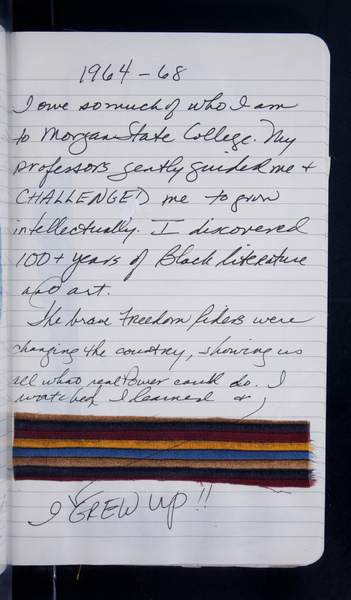 1964-68
I owe so much of who I am
to Morgan State College. My
professors gently guided me +
CHALLENGED me to grow
intellectually. I discovered
100+ years of Black literature
and art.
The brave Freedom Riders were
changing the country, showing us
all what real Power could do. I
watched I learned &
I GREW UP!!